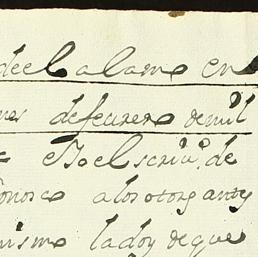 deel alamo en
nes defevrero demil
Yo el scriu.º de
onosco a los otorgantes
mismo la doy de que